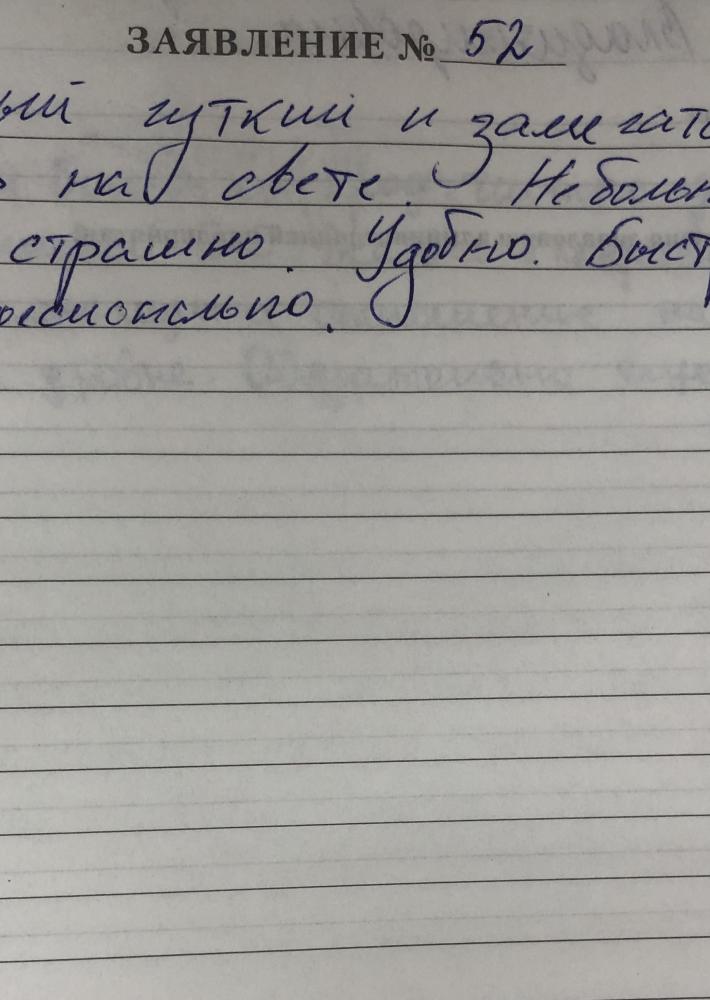 ЗАЯВЛЕНИЕ № 52
ый чуткий и замечат
на свете. Небольн
страшно. Удобно. Быст
ессионально.